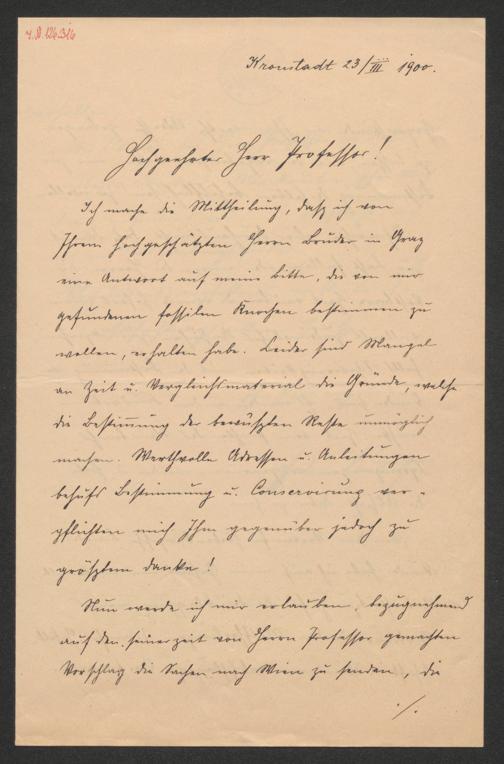 Kronstadt 23/III 1900.
Hochgeehrter Herr Professor!
Ich mache die Mittheilung, dasz ich von
Ihrem hochgeschätzten Herrn Bruder in Graz
eine Antwort auf meine Bitte, die von mir
gefundenen fossilen Knochen bestimmen zu
wollen, erhalten habe. Leider sind Mangel
an Zeit u. Vergleichsmaterial die Gründe, welche
die Bestimmung der bewuszten Reste unmöglich
machen. Werthvolle Adressen u. Anleitungen
behufs Bestimmung u. Conservirung ver-
pflichten mich Ihm gegenüber jedoch zu
grösztem Danke!
Nun werde ich mir erlauben, bezugnehmend
auf den seinerzeit von Herrn Professor gemachten
Vorschlag die Sachen nach Wien zu senden, die
./.